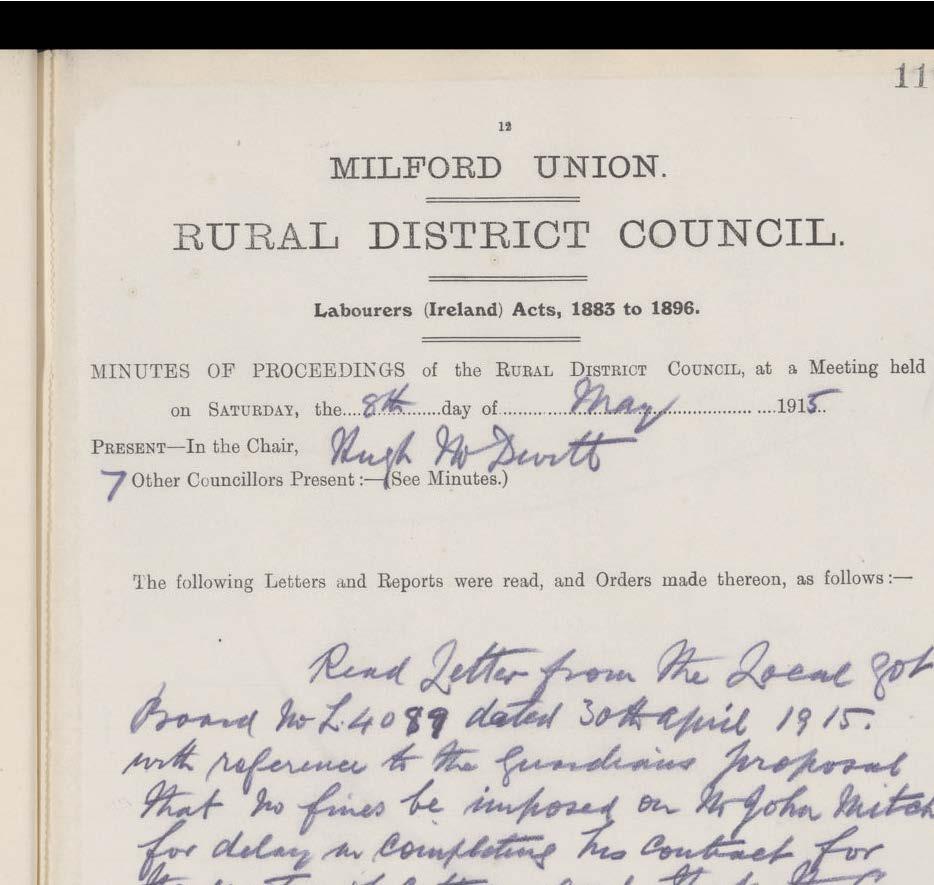 11
12
MILFORD UNION.
RURAL DISTRICT COUNCIL.
Labourers (Ireland) Acts, 1883 to 1896.
MINUTES OF PROCEEDINGS of the RURAL DISTRICT COUNCIL, at a Meeting held
on SATURDAY, the....8th......day of............May....................1915..
PRESENT—In the Chair, Hugh McDevitt
7 Other Councillors Present:—(See Minutes.)
The following Letters and Reports were read, and Orders made thereon, as follows:—
Read Letter from the Local Got
Board No L.4089 dated 30th April 1915.
with reference to the Guardians proposal
that no fines be imposed on Mr John Mitch
for delay in completing his contract for